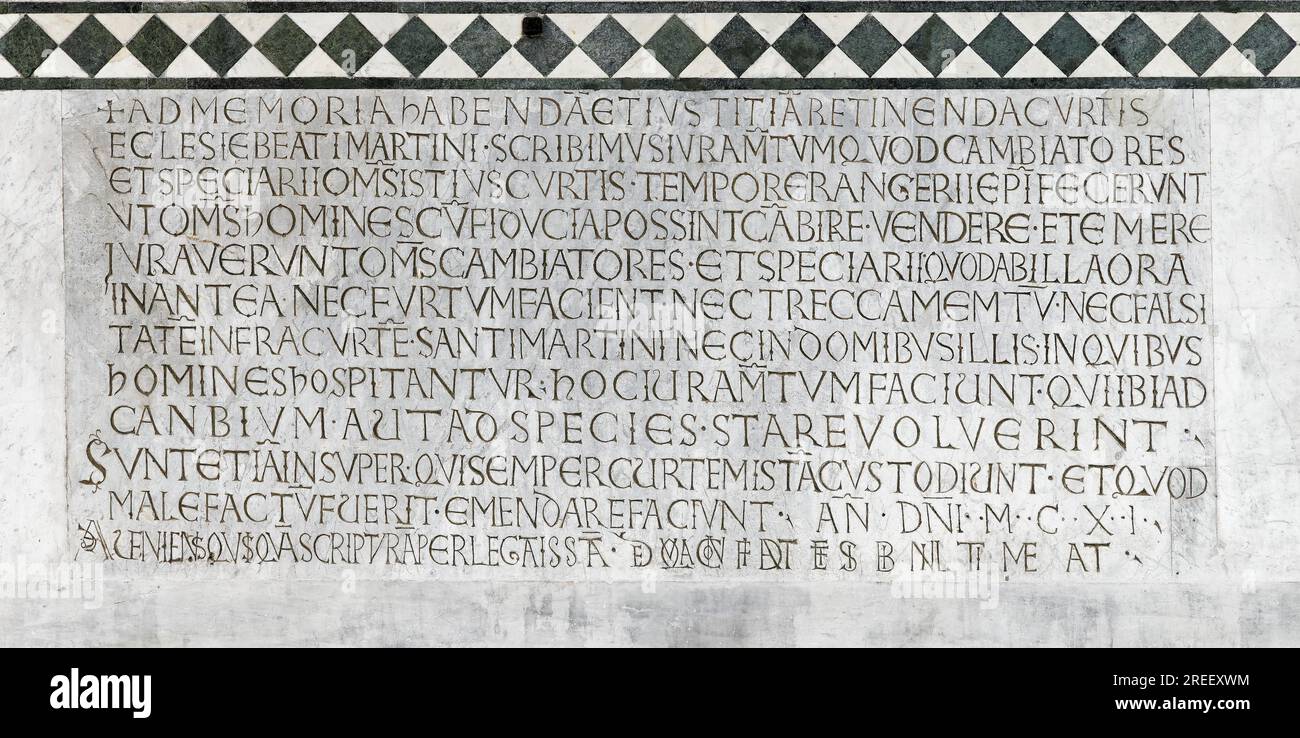 + AD MEMORIA hABENDĀ ET IVSTITIĀ RETINENDA CVRTIS
ECLESIE BEATI MARTINI · SCRIBIMVS IVRAM̄TVM QVOD CAMBIATORES
ET SPECIARII OM̄S ISTIVS CVRTIS · TEMPORE RANGERII EP̄I FECERVNT
VT OM̄S hOMINES CV̄ FIDVCIA POSSINT CĀBIRE · VENDERE · ET EMERE
IVRAVERVNT OM̄S CAMBIATORES · ET SPECIARII QVOD AB ILLA ORA
IN ANTEA · NEC FVRTVM FACIENT · NEC TRECCAMEMTV̄ · NEC FALSI
TATĒ INFRA CVRTĒ · SANTI MARTINI NEC IN DOMIBVS ILLIS · IN QVIBVS
hOMINES hOSPITANTVR · hOC IVRAM̄TVM FACIUNT · QVI IBI AD
CANBIVM · AUT AD SPECIES · STARE VOLVERINT ·
SVNT ETIĀ INSVPER · QVI SEMPER CURTEM ISTĀ CVSTODIUNT · ET QVOD
MALEFACTV̄ FUERIT · EMENDARE FACIVNT · AN̄ · DN̄I · M · C · X · I ·
SCRIPTVRĀ PERLEGAT ISSTĀ ·
alamy
Image ID: 2REEXWM
www.alamy.com